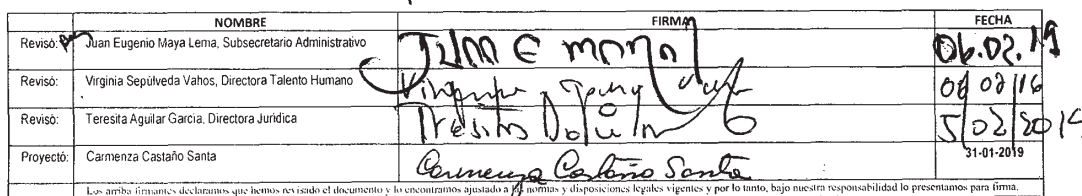 NOMBRE FIRMA FECHA
Revisó: Juan Eugenio Maya Lema, Subsecretario Administrativo Juan E maya L 06.02.19
Revisó: Virginia Sepúlveda Vahos, Directora Talento Humano Virginia
Revisó: Teresita Aguilar Garcia, Directora Jurídica Teresita Aguilar 5/02/2019
Proyectó: Carmenza Castaño Santa Carmenza Castaño Santa 31-01-2019
Los arriba firmantes declaramos que hemos revisado el documento y lo encontramos ajustado a normas y disposiciones legales vigentes y por lo tanto, bajo nuestra responsabilidad lo presentamos para firma.